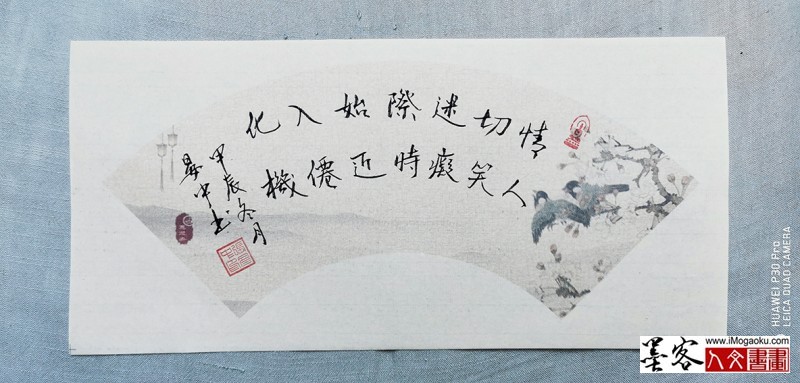 情切迷際始入化
人笑癡時近僊機
甲辰冬月
中书
HUAWEI P30 Pro
LEICA QUAD CAMERA
墨客
www.iMogaoku.com
人文書畫